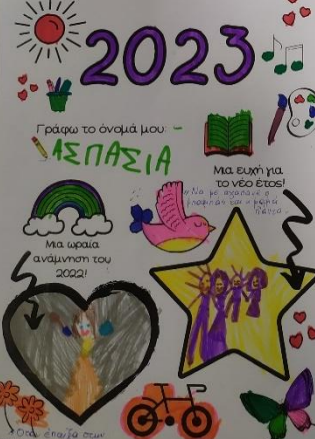 2023
Γράφω το όνομά μου: -
ΑΣΠΑΣΙΑ
Μια ευχή για
το νέο έτος!
Να με αγαπάνε η
μαμά
πάντα.
Μια ωραία
ανάμνηση του
2022!
Όταν έπαιζα στην